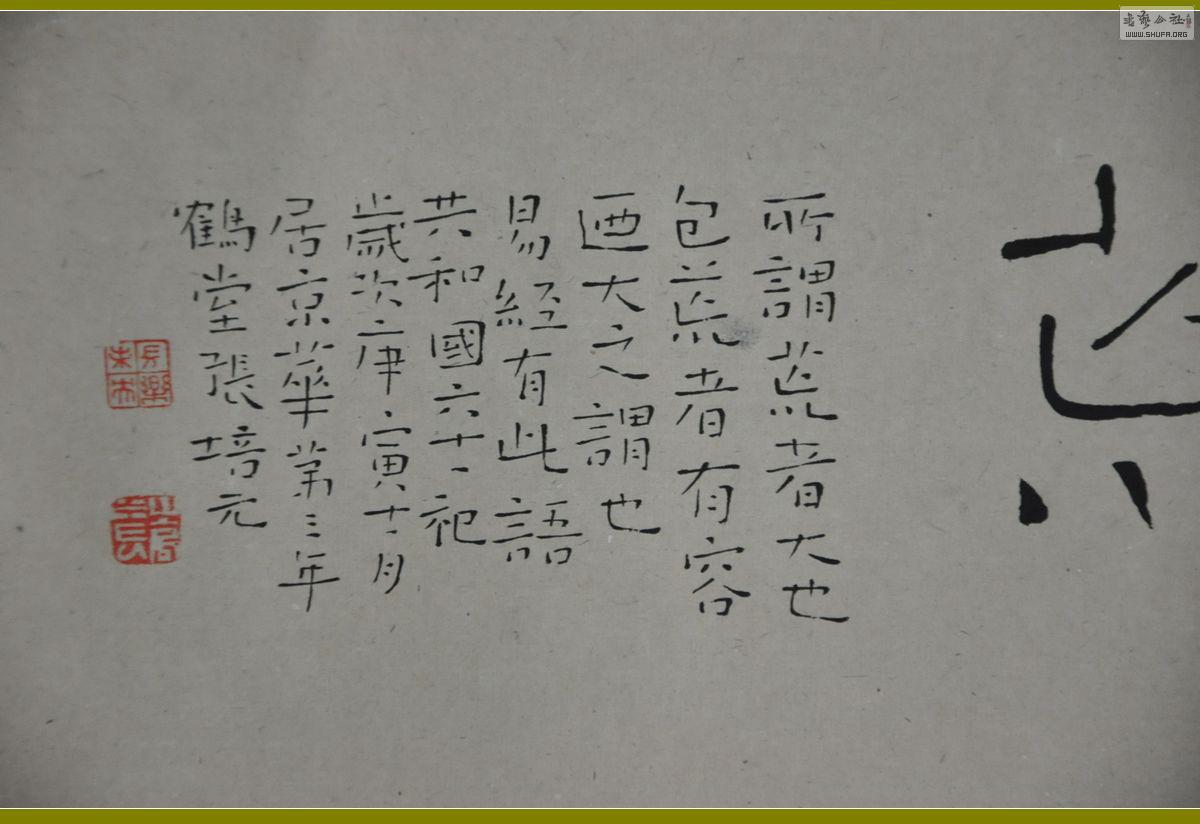 所謂荒者大也
包荒者有容
迺大之謂也
易經有此語
共和國六十一祀
歲次庚寅十一月
居京華第三年
鶴堂張培元
長樂未央
書藝公社
WWW.SHUFA.ORG